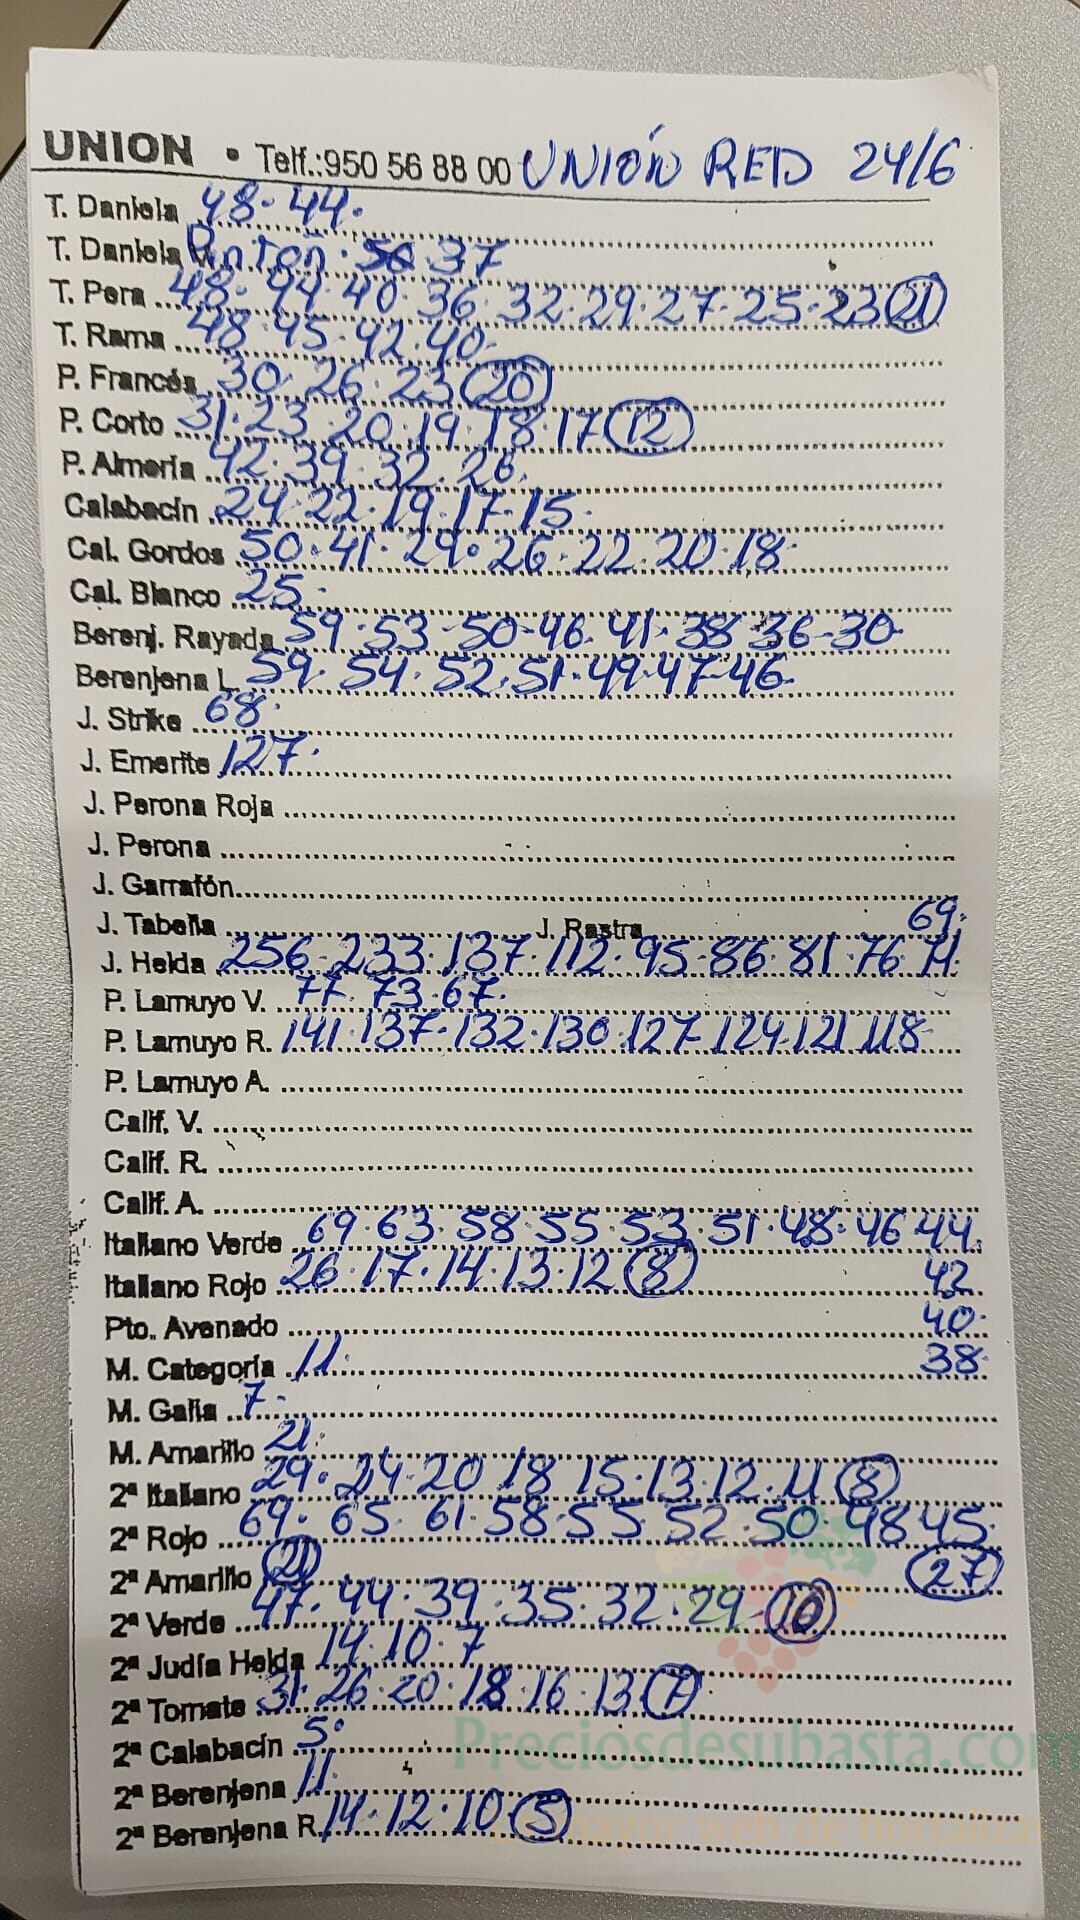 UNION • Telf.:950 56 88 00 UNIÓN RED 24/6
T. Daniela 48. 44.
T. Daniela Pintón. 50 37
T. Pera 48. 44. 40. 36. 32. 29. 27. 25. 23 21
T. Rama 48. 45. 42. 40.
P. Francés 30. 26. 23 20
P. Corto 31. 23. 20. 19. 18. 17 12
P. Almería 42. 39. 32. 26.
Calabacín 24. 22. 19. 17. 15.
Cal. Gordos 50. 41. 29. 26. 22. 20. 18.
Cal. Blanco 25.
Berenj. Rayada 59. 53-50-46. 41. 38 36-30.
Berenjena L. 59. 54. 52. 51. 49. 47-46.
J. Strike 68.
J. Emerite 127.
J. Perona Roja
J. Perona
J. Garrafón
J. Tabella J. Rastra 69.
J. Helda 256. 233. 137. 112. 95-86. 81. 76 71.
P. Lamuyo V. 77. 73. 67.
P. Lamuyo R. 141. 137. 132. 130. 127. 124. 121 118
P. Lamuyo A.
Calif. V.
Calif. R.
Calif. A.
Italiano Verde 69. 63. 58. 55. 53. 51. 48. 46 44.
Italiano Rojo 26. 17. 14. 13. 12 8 42
Pto. Avenado 40.
M. Categoría 11. 38.
M. Galia 7.
M. Amarillo 21.
2ª Italiano 29. 24. 20 18 15. 13. 12. 11 8
2ª Rojo 69. 65. 61. 58. 55. 52. 50. 48 45.
2ª Amarillo 21 27
2ª Verde 47. 44. 39. 35. 32. 29 10
2ª Judía Helda 14. 10. 7
2ª Tomate 31. 26. 20. 18. 16. 13 7
2ª Calabacín 5.
2ª Berenjena 11.
2ª Berenjena R. 14. 12. 10 5
Preciosdesubasta.com
mayor web de hortalizas